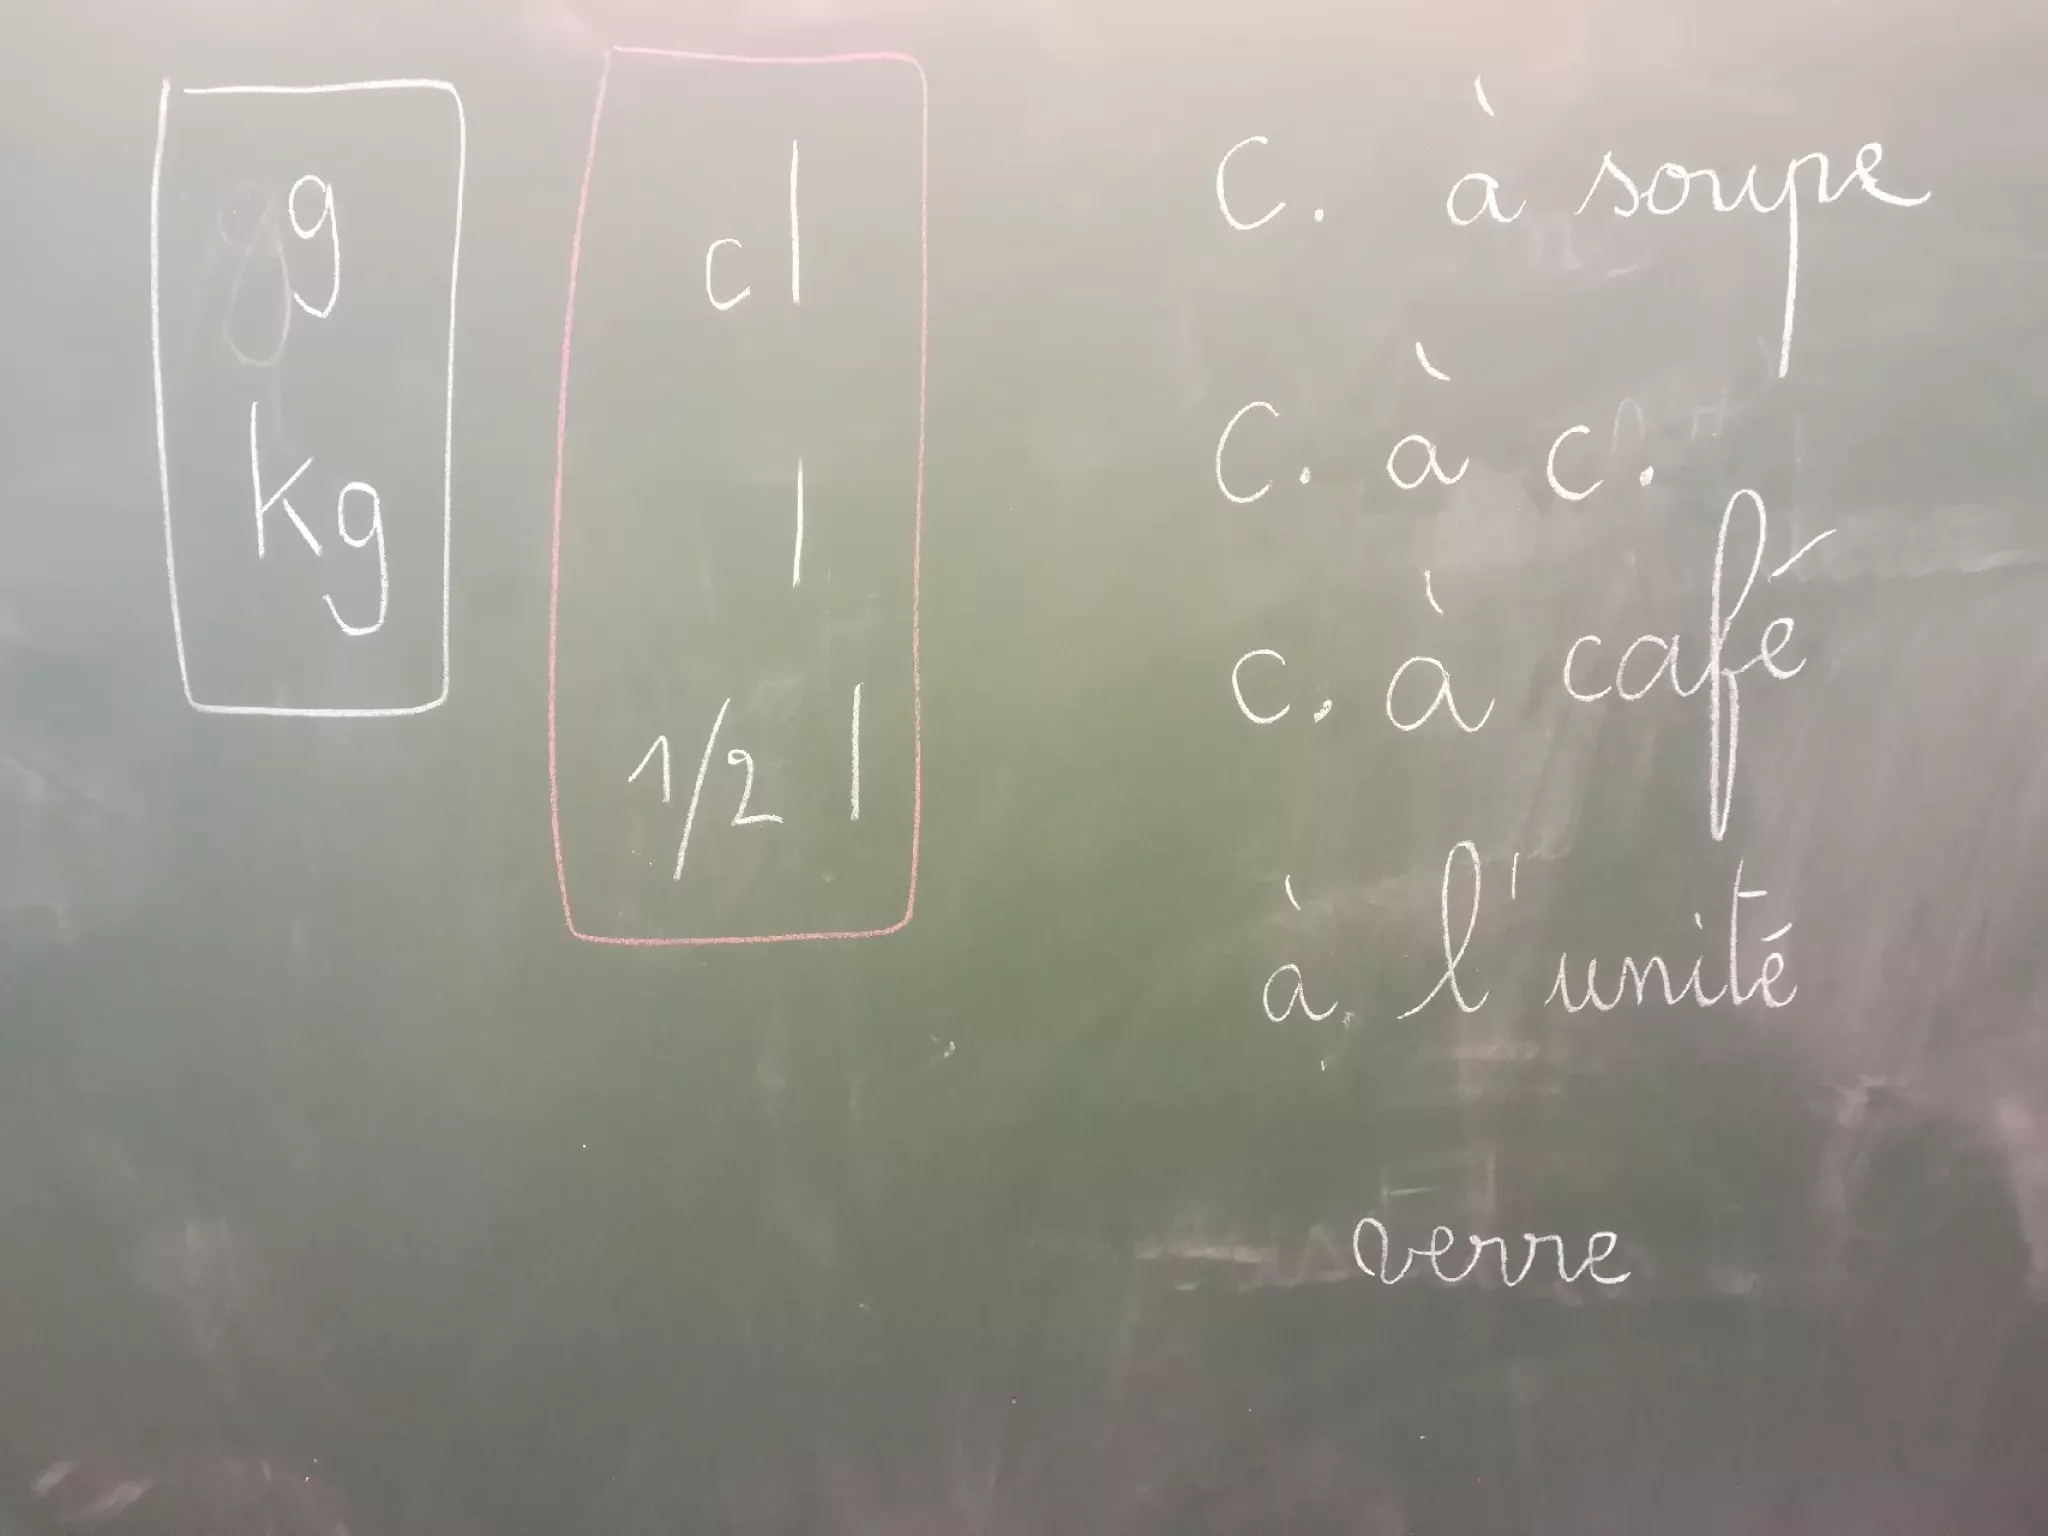 g
kg
cl
l
1/2 l
C. à soupe
C. à c.
c. à café
à l'unité
verre